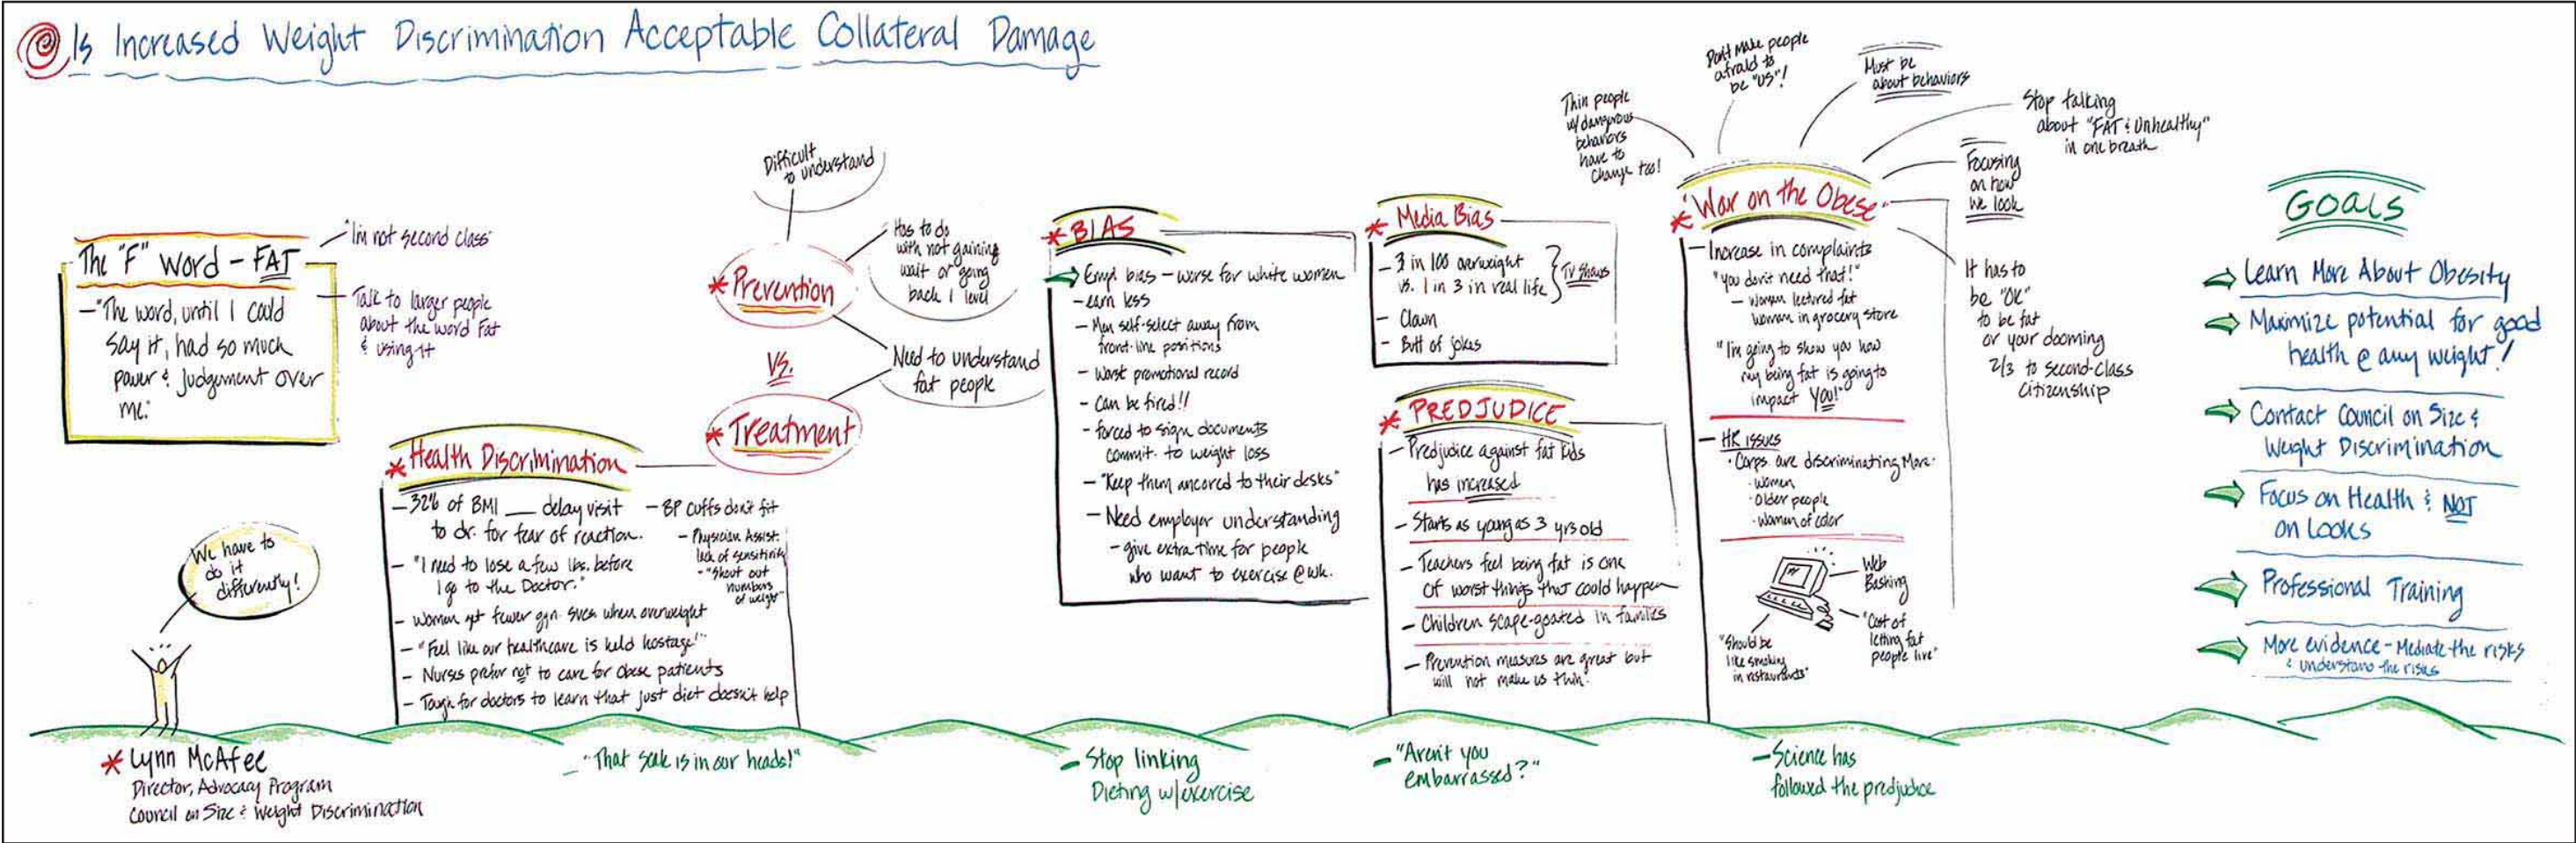 Is Increased Weight Discrimination Acceptable Collateral Damage
The "F" Word - FAT
- "The word, until I could
say it, had so much
power & judgement over
me."
"I'm not second class"
Talk to larger people
about the word Fat
& using it
We have to
do it
differently!
* Lynn McAfee
Director, Advocacy Program
Council on Size & Weight Discrimination
* Health Discrimination
- 32% of BMI ___ delay visit
to dr. for fear of reaction.
- "I need to lose a few lbs. before
I go to the Doctor."
- Women get fewer gyn. svcs when overweight
- "Feel like our healthcare is held hostage!"
- Nurses prefer not to care for obese patients
- Tough for doctors to learn that just diet doesn't help
- BP cuffs don't fit
- Physician Assist.
lack of sensitivity
- "Shout out
numbers
of weight"
Difficult
to understand
* Prevention
Has to do
with not gaining
wait or going
back 1 level
vs.
Need to understand
fat people
* Treatment
* BIAS
Empl bias - worse for white women
- earn less
- Men self-select away from
front-line positions
- Worst promotional record
- Can be fired!!
- forced to sign documents
commit. to weight loss
- "Keep them ancored to their desks"
- Need employer understanding
- give extra time for people
who want to exercise @ wk.
* Media Bias
- 3 in 100 overweight
vs. 1 in 3 in real life
TV Shows
- Clown
- Butt of jokes
* PREDJUDICE
- Predjudice against fat kids
has increased
- Starts as young as 3 yrs old
- Teachers feel being fat is one
of worst things that could happen
- Children scape-goated in families
- Prevention measures are great but
will not make us thin.
Thin people
w/ dangerous
behaviors
have to
change too!
Don't make people
afraid to
be "US"!
Must be
about behaviors
Stop talking
about "FAT & Unhealthy"
in one breath
Focusing
on how
we look
It has to
be "OK"
to be fat
or your dooming
2/3 to second-class
citizenship
* War on the Obese
- Increase in complaints
"you don't need that!"
- Woman lectured fat
woman in grocery store
"I'm going to show you how
my being fat is going to
impact YOU!"
- HR issues
· Corps. are discriminating More.
· Women
· Older people
· Women of color
Web
Bashing
"Cost of
letting fat
people live"
"Should be
like smoking
in restaurants"
GOALS
Learn More About Obesity
Maximize potential for good
health @ any weight!
Contact Council on Size &
Weight Discrimination
Focus on Health & NOT
on Looks
Professional Training
More evidence - Mediate the risks
& understand the risks
- "That scale is in our heads!"
- Stop linking
Dieting w/exercise
- "Aren't you
embarrassed?"
- Science has
followed the predjudice